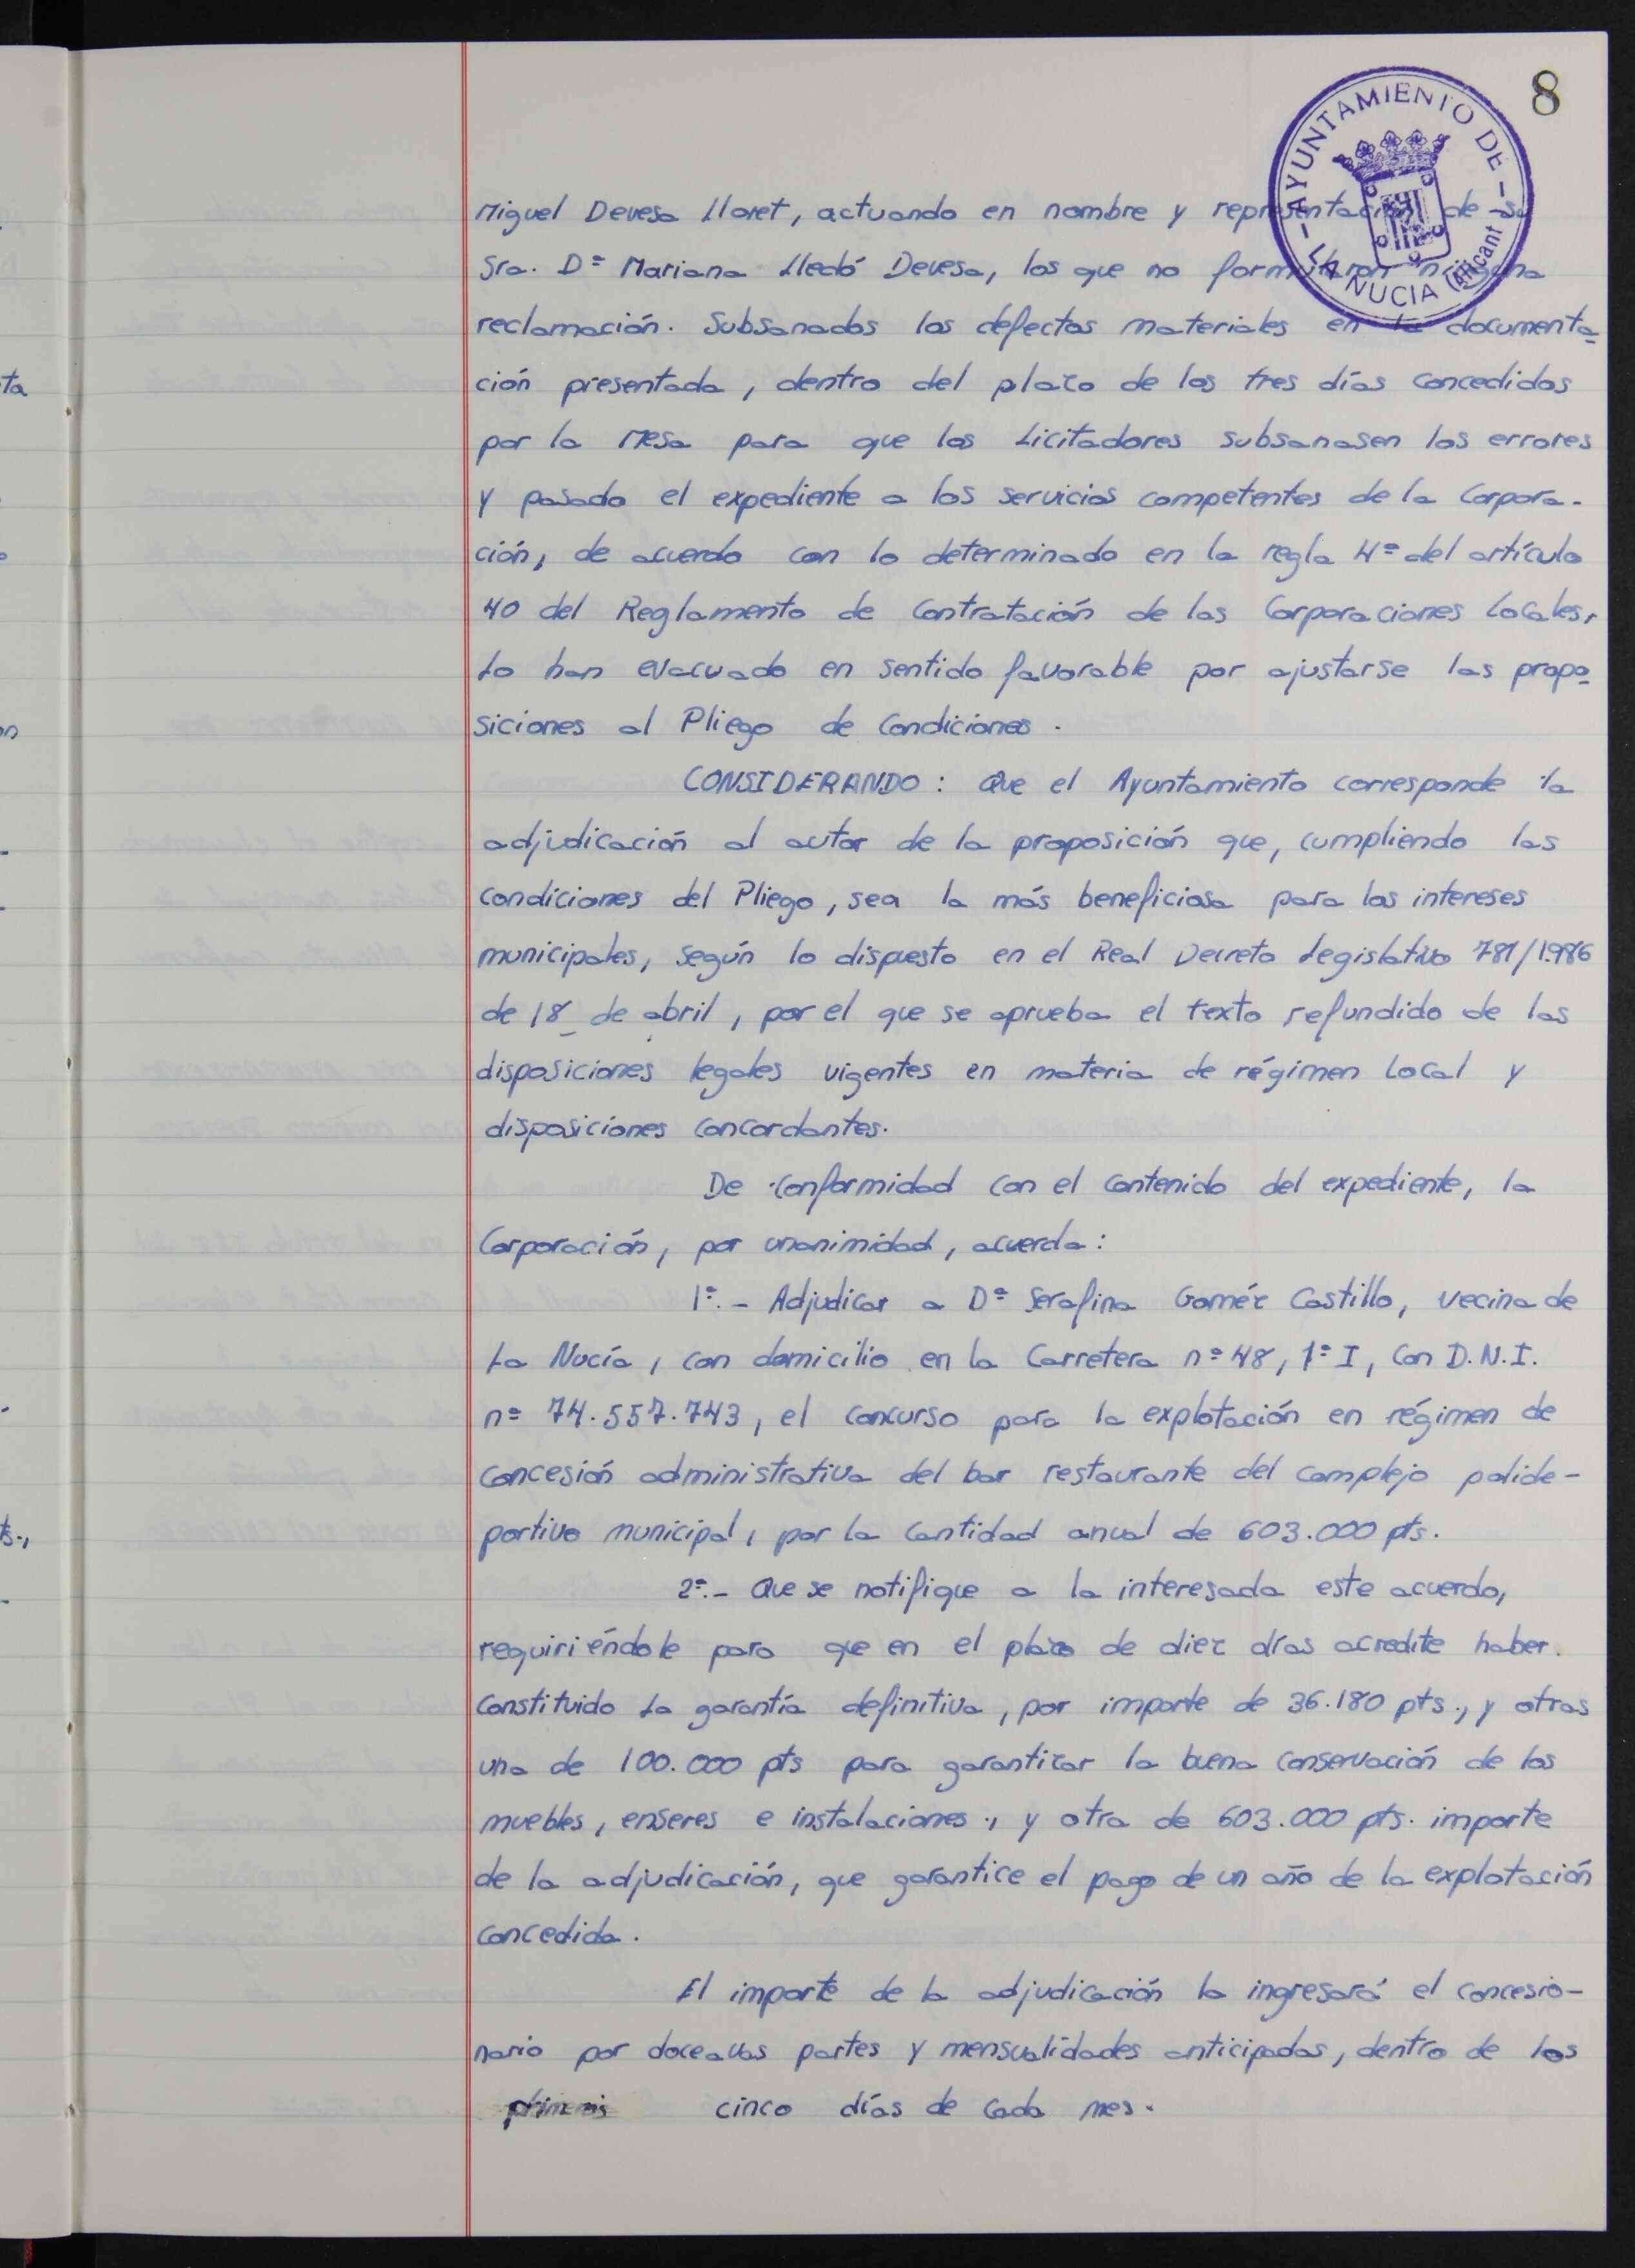 8
- AYUNTAMIENTO DE -
LA NUCIA (Alicant)
Miguel Devesa Lloret, actuando en nombre y representación de su
Sra. Dª Mariana Lledó Devesa, los que no formularon ninguna
reclamación. Subsanados los defectos materiales en la documenta-
ción presentada, dentro del plazo de los tres días concedidos
por la Mesa para que los Licitadores subsanasen los errores
y pasado el expediente a los servicios competentes de la Corpora-
ción, de acuerdo con lo determinado en la regla 4ª del artículo
40 del Reglamento de Contratación de las Corporaciones Locales,
Lo han evacuado en sentido favorable por ajustarse las propo-
siciones al Pliego de Condiciones.
CONSIDERANDO: Que el Ayuntamiento corresponde la
adjudicación al autor de la proposición que, cumpliendo las
condiciones del Pliego, sea la más beneficiosa para los intereses
municipales, según lo dispuesto en el Real Decreto Legislativo 781/1.986
de 18 de abril, por el que se aprueba el texto refundido de las
disposiciones legales vigentes en materia de régimen Local y
disposiciones concordantes.
De conformidad con el contenido del expediente, la
Corporación, por unanimidad, acuerda:
1º.- Adjudicar a Dª Serafina Goméz Castillo, vecina de
La Nucía, con domicilio en la Carretera nº 48, 1º I, con D.N.I.
nº 74.557.743, el concurso para la explotación en régimen de
concesión administrativa del bar restaurante del complejo polide-
portivo municipal, por la cantidad anual de 603.000 pts.
2º.- Que se notifique a la interesada este acuerdo,
requiriéndole para que en el plazo de diez días acredite haber
constituido la garantía definitiva, por importe de 36.180 pts., y otras
una de 100.000 pts para garantizar la buena conservación de los
muebles, enseres e instalaciones., y otra de 603.000 pts. importe
de la adjudicación, que garantice el pago de un año de la explotación
concedida.
El importe de la adjudicación lo ingresará el concesio-
nario por doceavas partes y mensualidades anticipadas, dentro de los
primeros cinco días de cada mes.